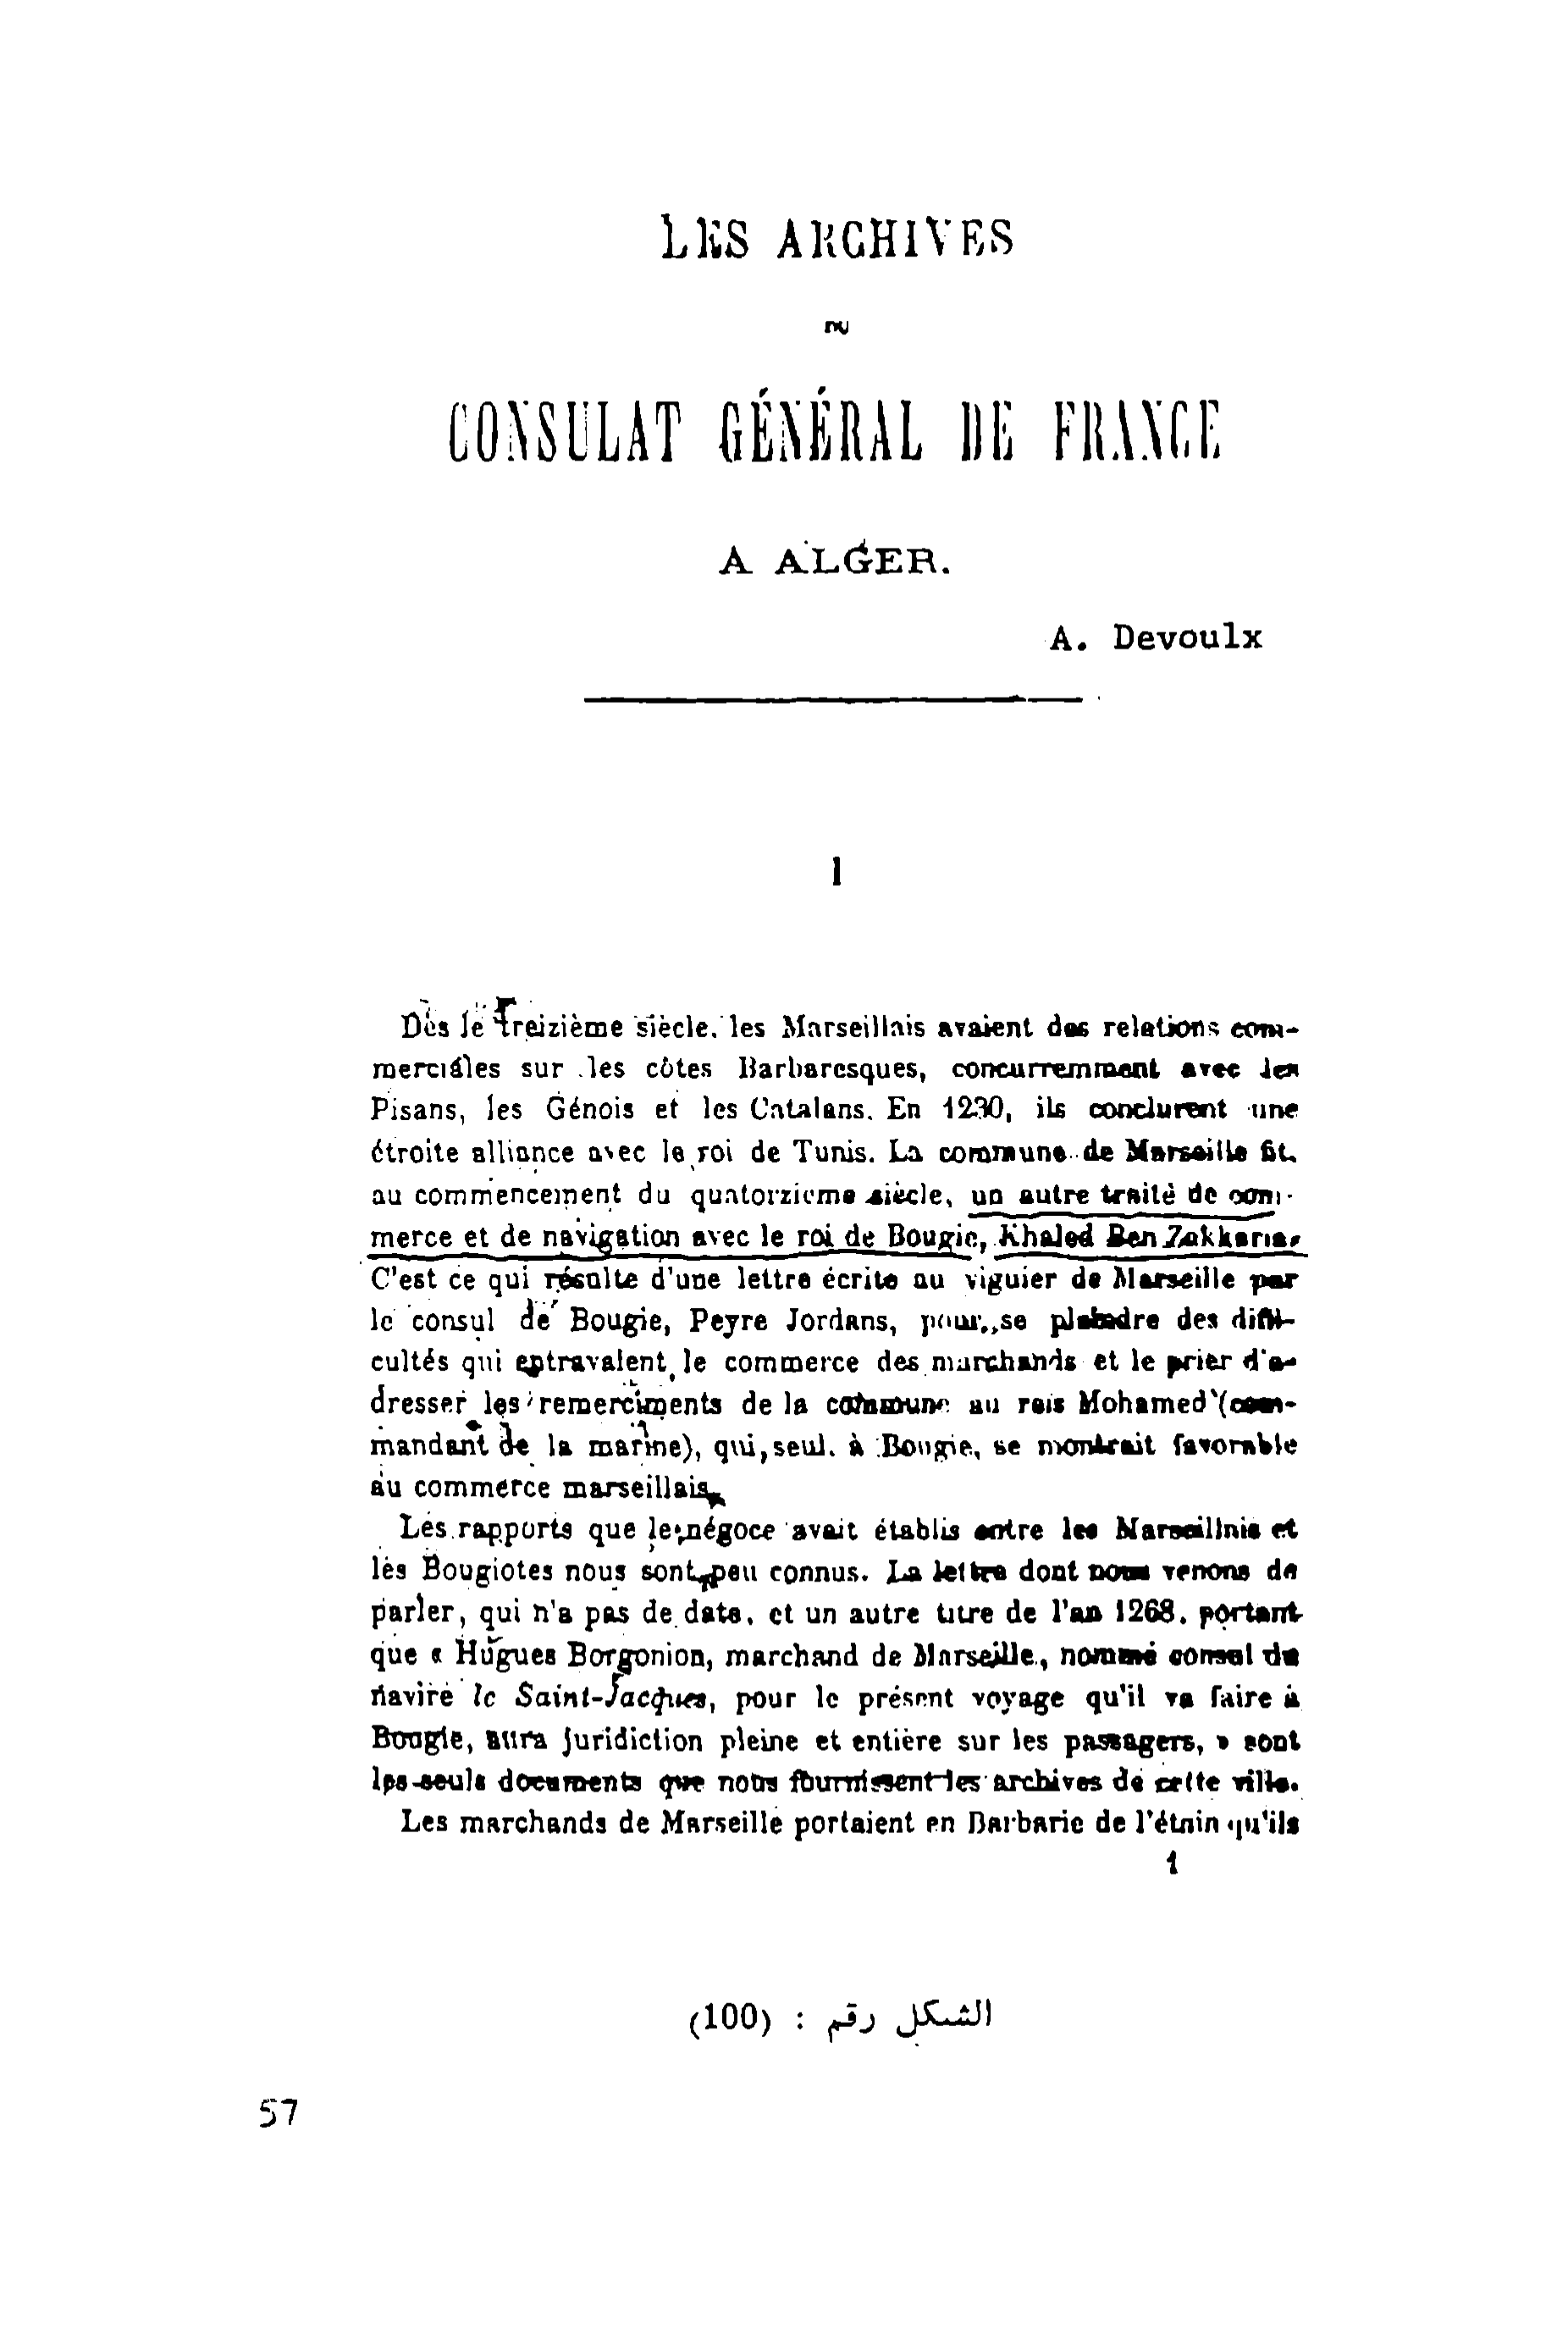 LES ARCHIVES
DU
CONSULAT GÉNÉRAL DE FRANCE
A ALGER.
A. Devoulx
I
Dès le treizième siècle, les Marseillais avaient des relations com-
merciales sur les côtes Barbaresques, concurremment avec les
Pisans, les Génois et les Catalans. En 1230, ils conclurent une
étroite alliance avec le roi de Tunis. La commune de Marseille fit,
au commencement du quatorzieme siècle, un autre traité de com-
merce et de navigation avec le roi de Bougie, Khaled Ben Zakkaria.
C'est ce qui résulte d'une lettre écrite au viguier de Marseille par
le consul de Bougie, Peyre Jordans, pour se plaindre des diffi-
cultés qui entravaient le commerce des marchands et le prier d'a-
dresser les remerciments de la commune au rais Mohamed (com-
mandant de la marine), qui, seul, à Bougie, se montrait favorable
au commerce marseillais.
Les rapports que le négoce avait établis entre les Marseillais et
les Bougiotes nous sont peu connus. La lettre dont nous venons de
parler, qui n'a pas de date, et un autre titre de l'an 1268, portant
que « Hugues Borgonion, marchand de Marseille, nommé consul du
navire le Saint-Jacques, pour le présent voyage qu'il va faire à
Bougie, aura juridiction pleine et entière sur les passagers, » sont
les seuls documents que nous fournissent les archives de cette ville.
Les marchands de Marseille portaient en Barbarie de l'étain qu'ils
1
الشكل رقم : (100)
57